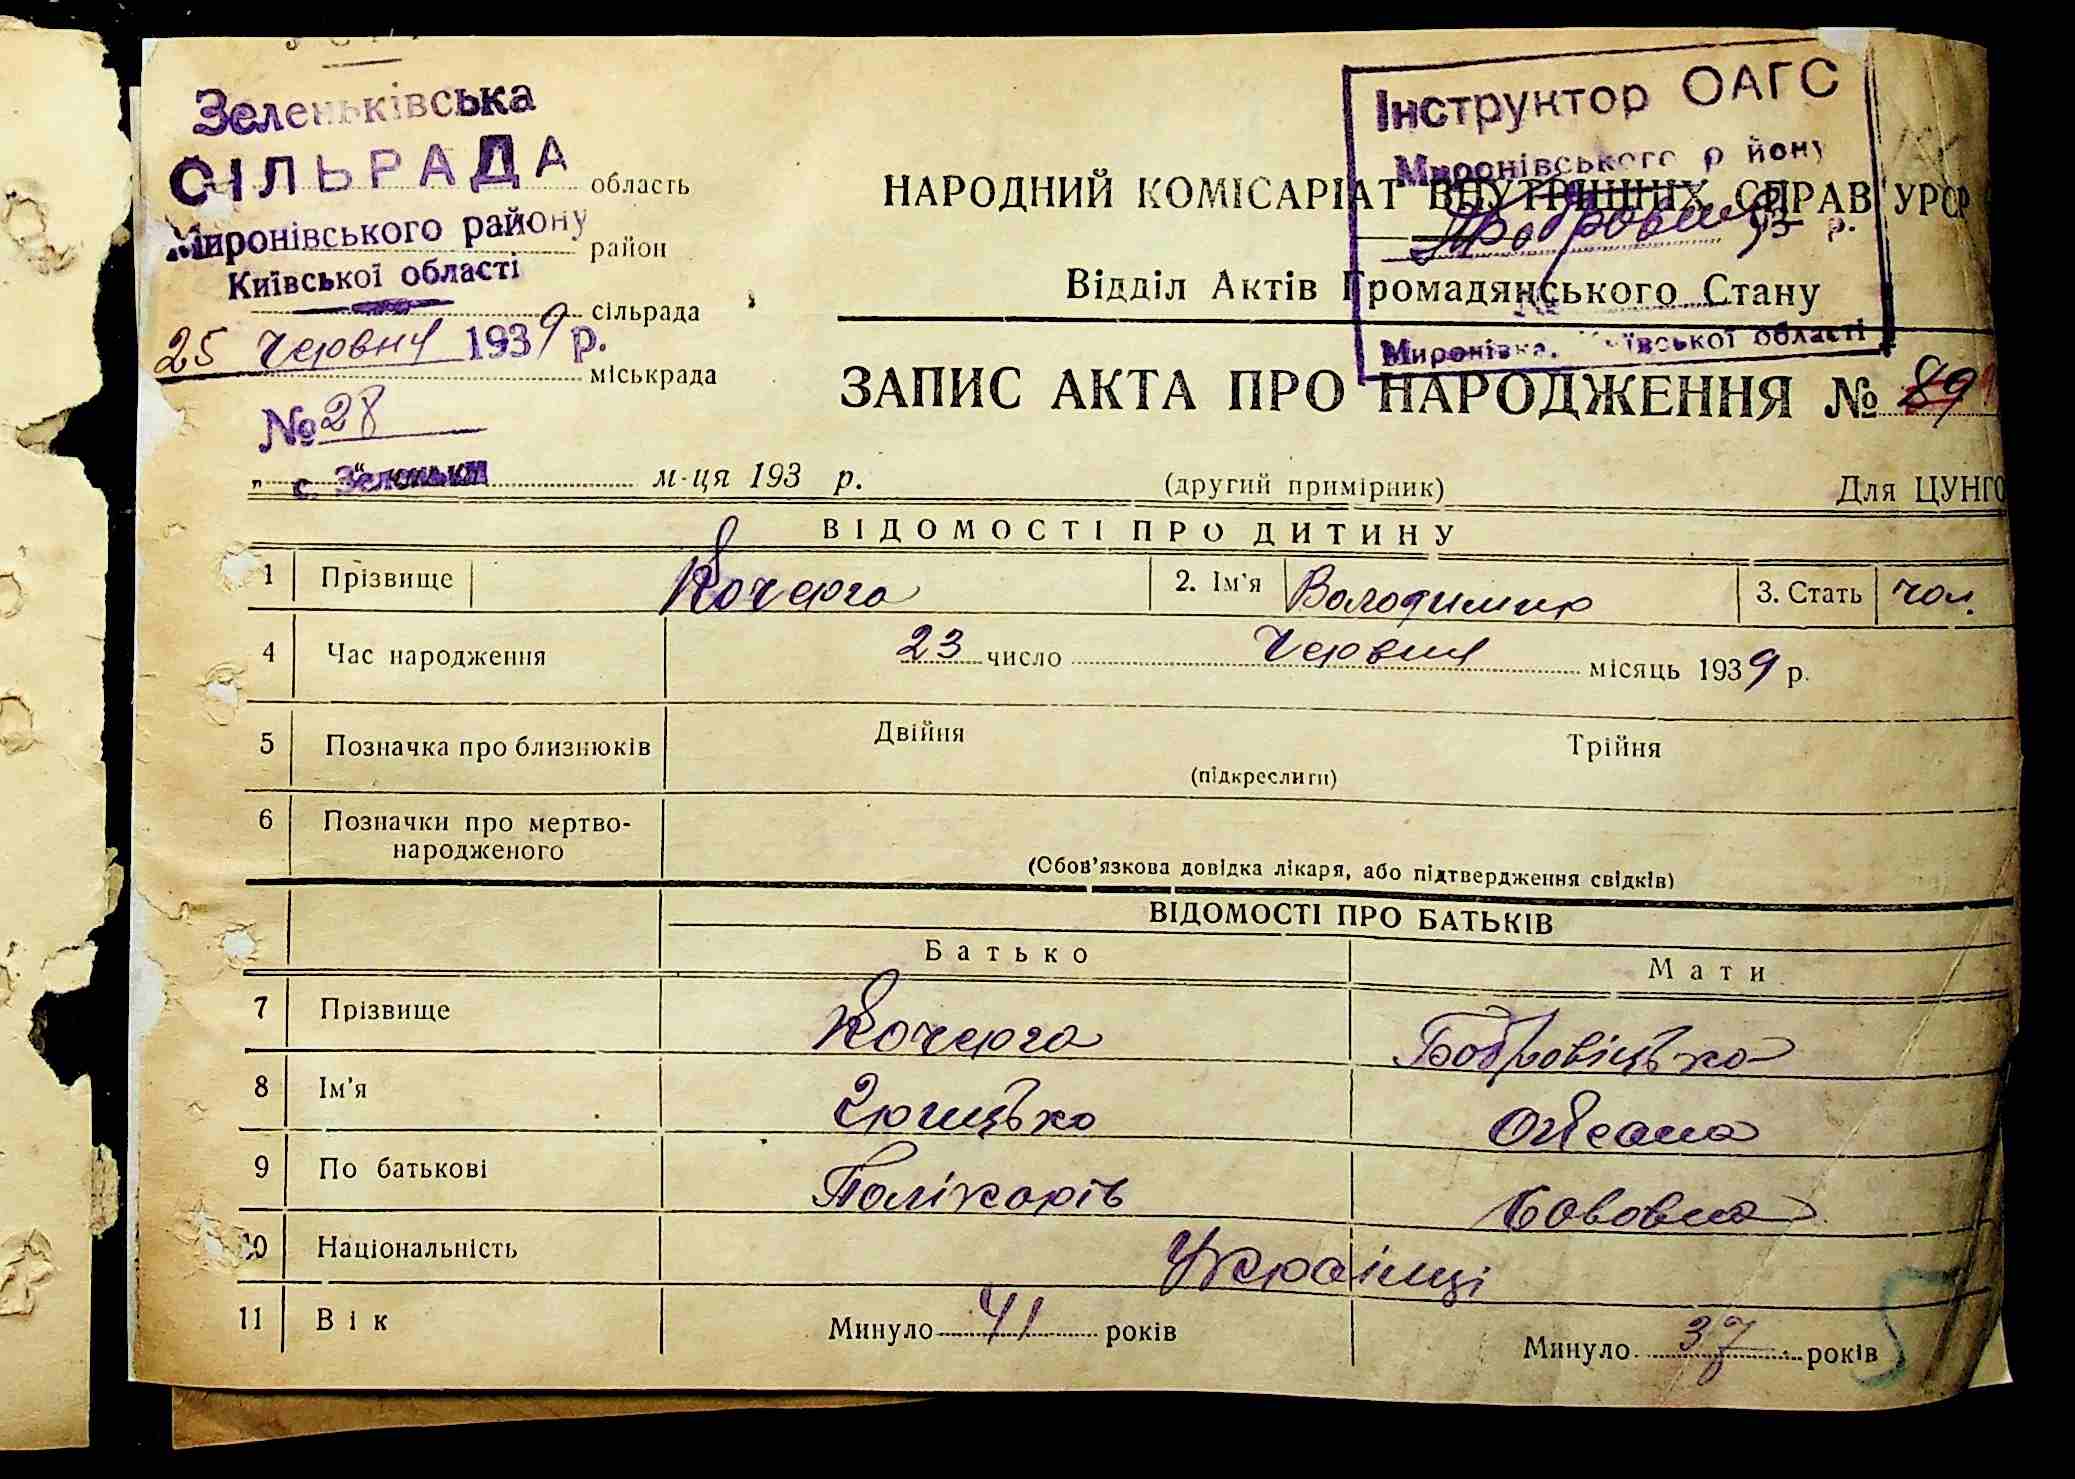 Зеленьківська
СІЛЬРАДА область
Миронівського району район
Київської області
сільрада
25 червня 1939 р.
міськрада
№ 28
с. Зеленьки
" " м-ця 193 р.
Інструктор ОАГС
Миронівського району
193 р.
№
Миронівка, Київської області
НАРОДНИЙ КОМІСАРІАТ ВНУТРІШНІХ СПРАВ УРСР
Відділ Актів Громадянського Стану
ЗАПИС АКТА ПРО НАРОДЖЕННЯ № 89
(другий примірник) Для ЦУНГО
ВІДОМОСТІ ПРО ДИТИНУ
1 Прізвище Кочерга 2. Ім'я Володимир 3. Стать чол.
4 Час народження 23 число Червня місяць 1939 р.
5 Позначка про близнюків Двійня Трійня
(підкреслити)
6 Позначки про мертво-
народженого
(Обов'язкова довідка лікаря, або підтвердження свідків)
ВІДОМОСТІ ПРО БАТЬКІВ
Батько Мати
7 Прізвище Кочерга Бобровіцька
8 Ім'я Грицько Оксана
9 По батькові Полікарпів Савовна
10 Національність Українці
11 Вік Минуло 41 років Минуло 37 років